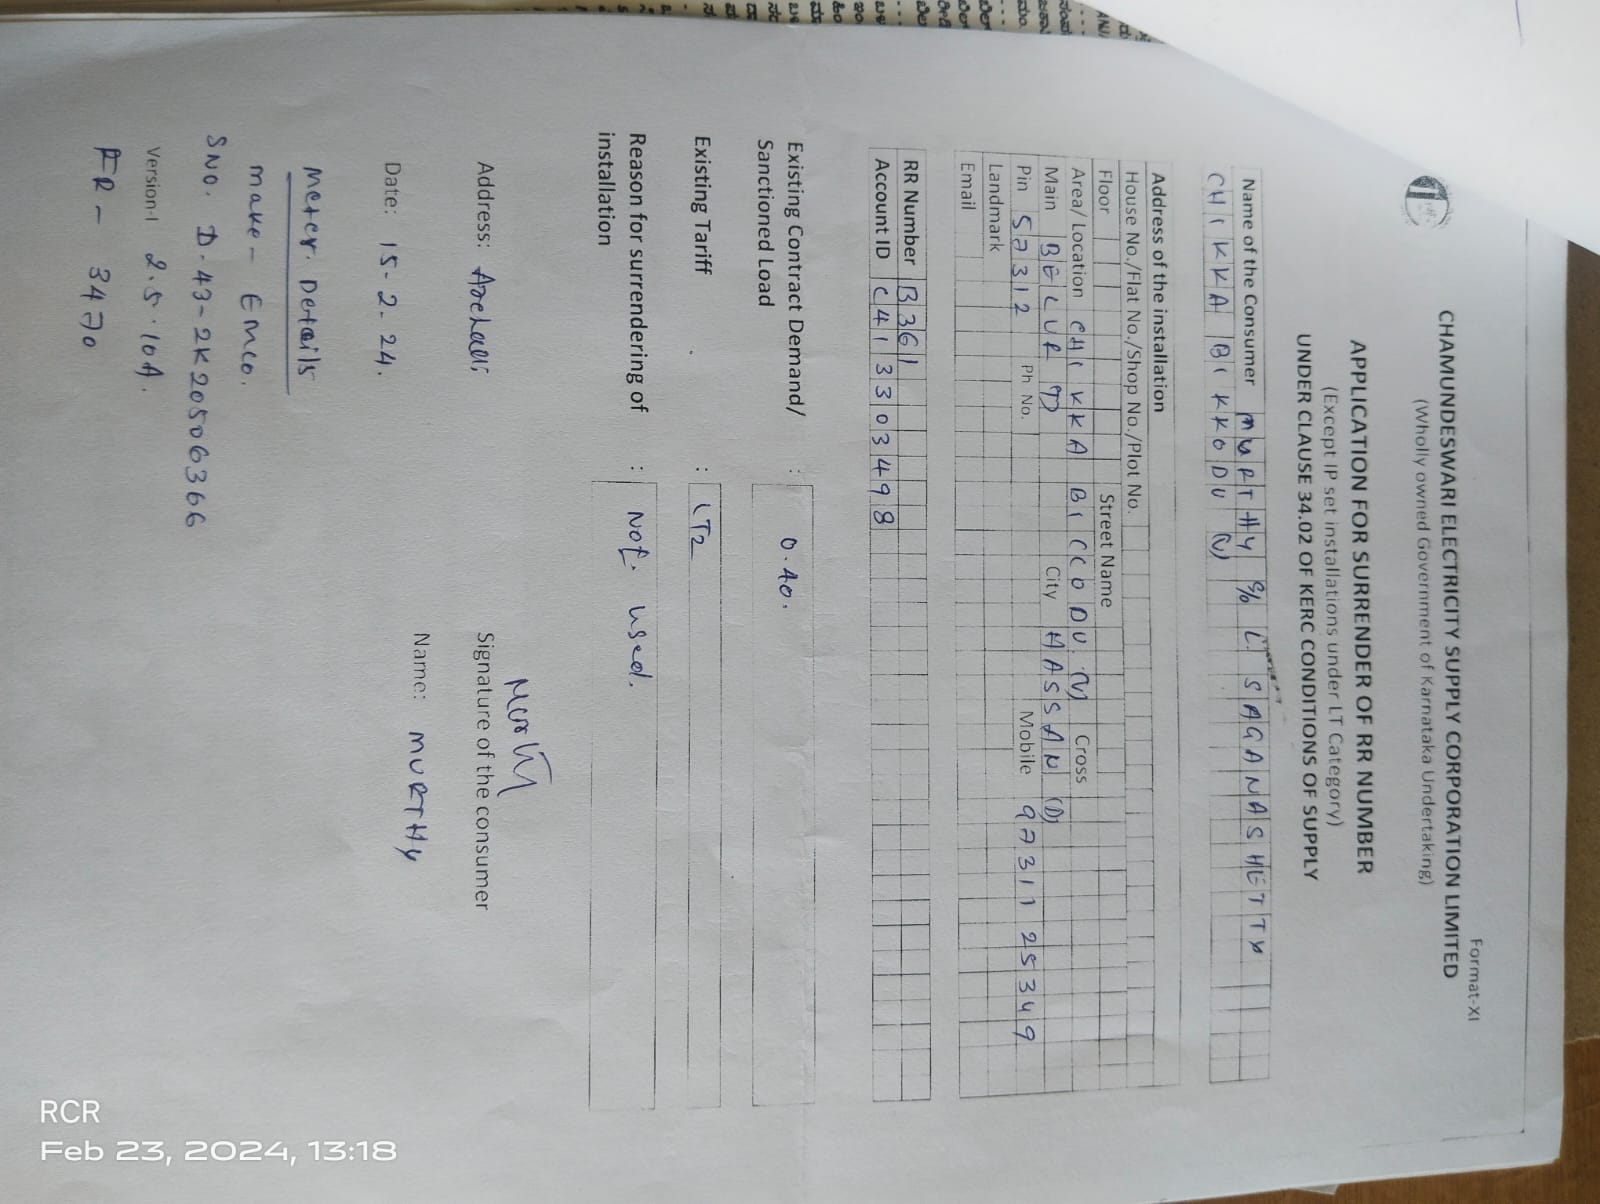 Format-XI
CHAMUNDESWARI ELECTRICITY SUPPLY CORPORATION LIMITED
(Wholly owned Government of Karnataka Undertaking)
APPLICATION FOR SURRENDER OF RR NUMBER
(Except IP set installations under LT Category)
UNDER CLAUSE 34.02 OF KERC CONDITIONS OF SUPPLY
Name of the Consumer MURTHY % L SAGANASHETTY
CHIKKA BIKKODU (V)
Address of the installation
House No./Flat No./Shop No./Plot No.
Floor Street Name
Area/ Location CHIKKA BICCODU. (V) Cross
Main BELUR (T) City HASSAN (D)
Pin 57312 Ph No. Mobile 9731125349
Landmark
Email
RR Number B361
Account ID C413303498
Existing Contract Demand/ : 0.40.
Sanctioned Load
Existing Tariff : LT2
Reason for surrendering of : Not used.
installation
Address: Signature of the consumer
Date: 15-2-24. Name: MURTHY
Meter Details
make - Emco.
SNO. D.43-2K20506366
Version-I 2.5-10A.
FR - 3470
RCR
Feb 23, 2024, 13:18